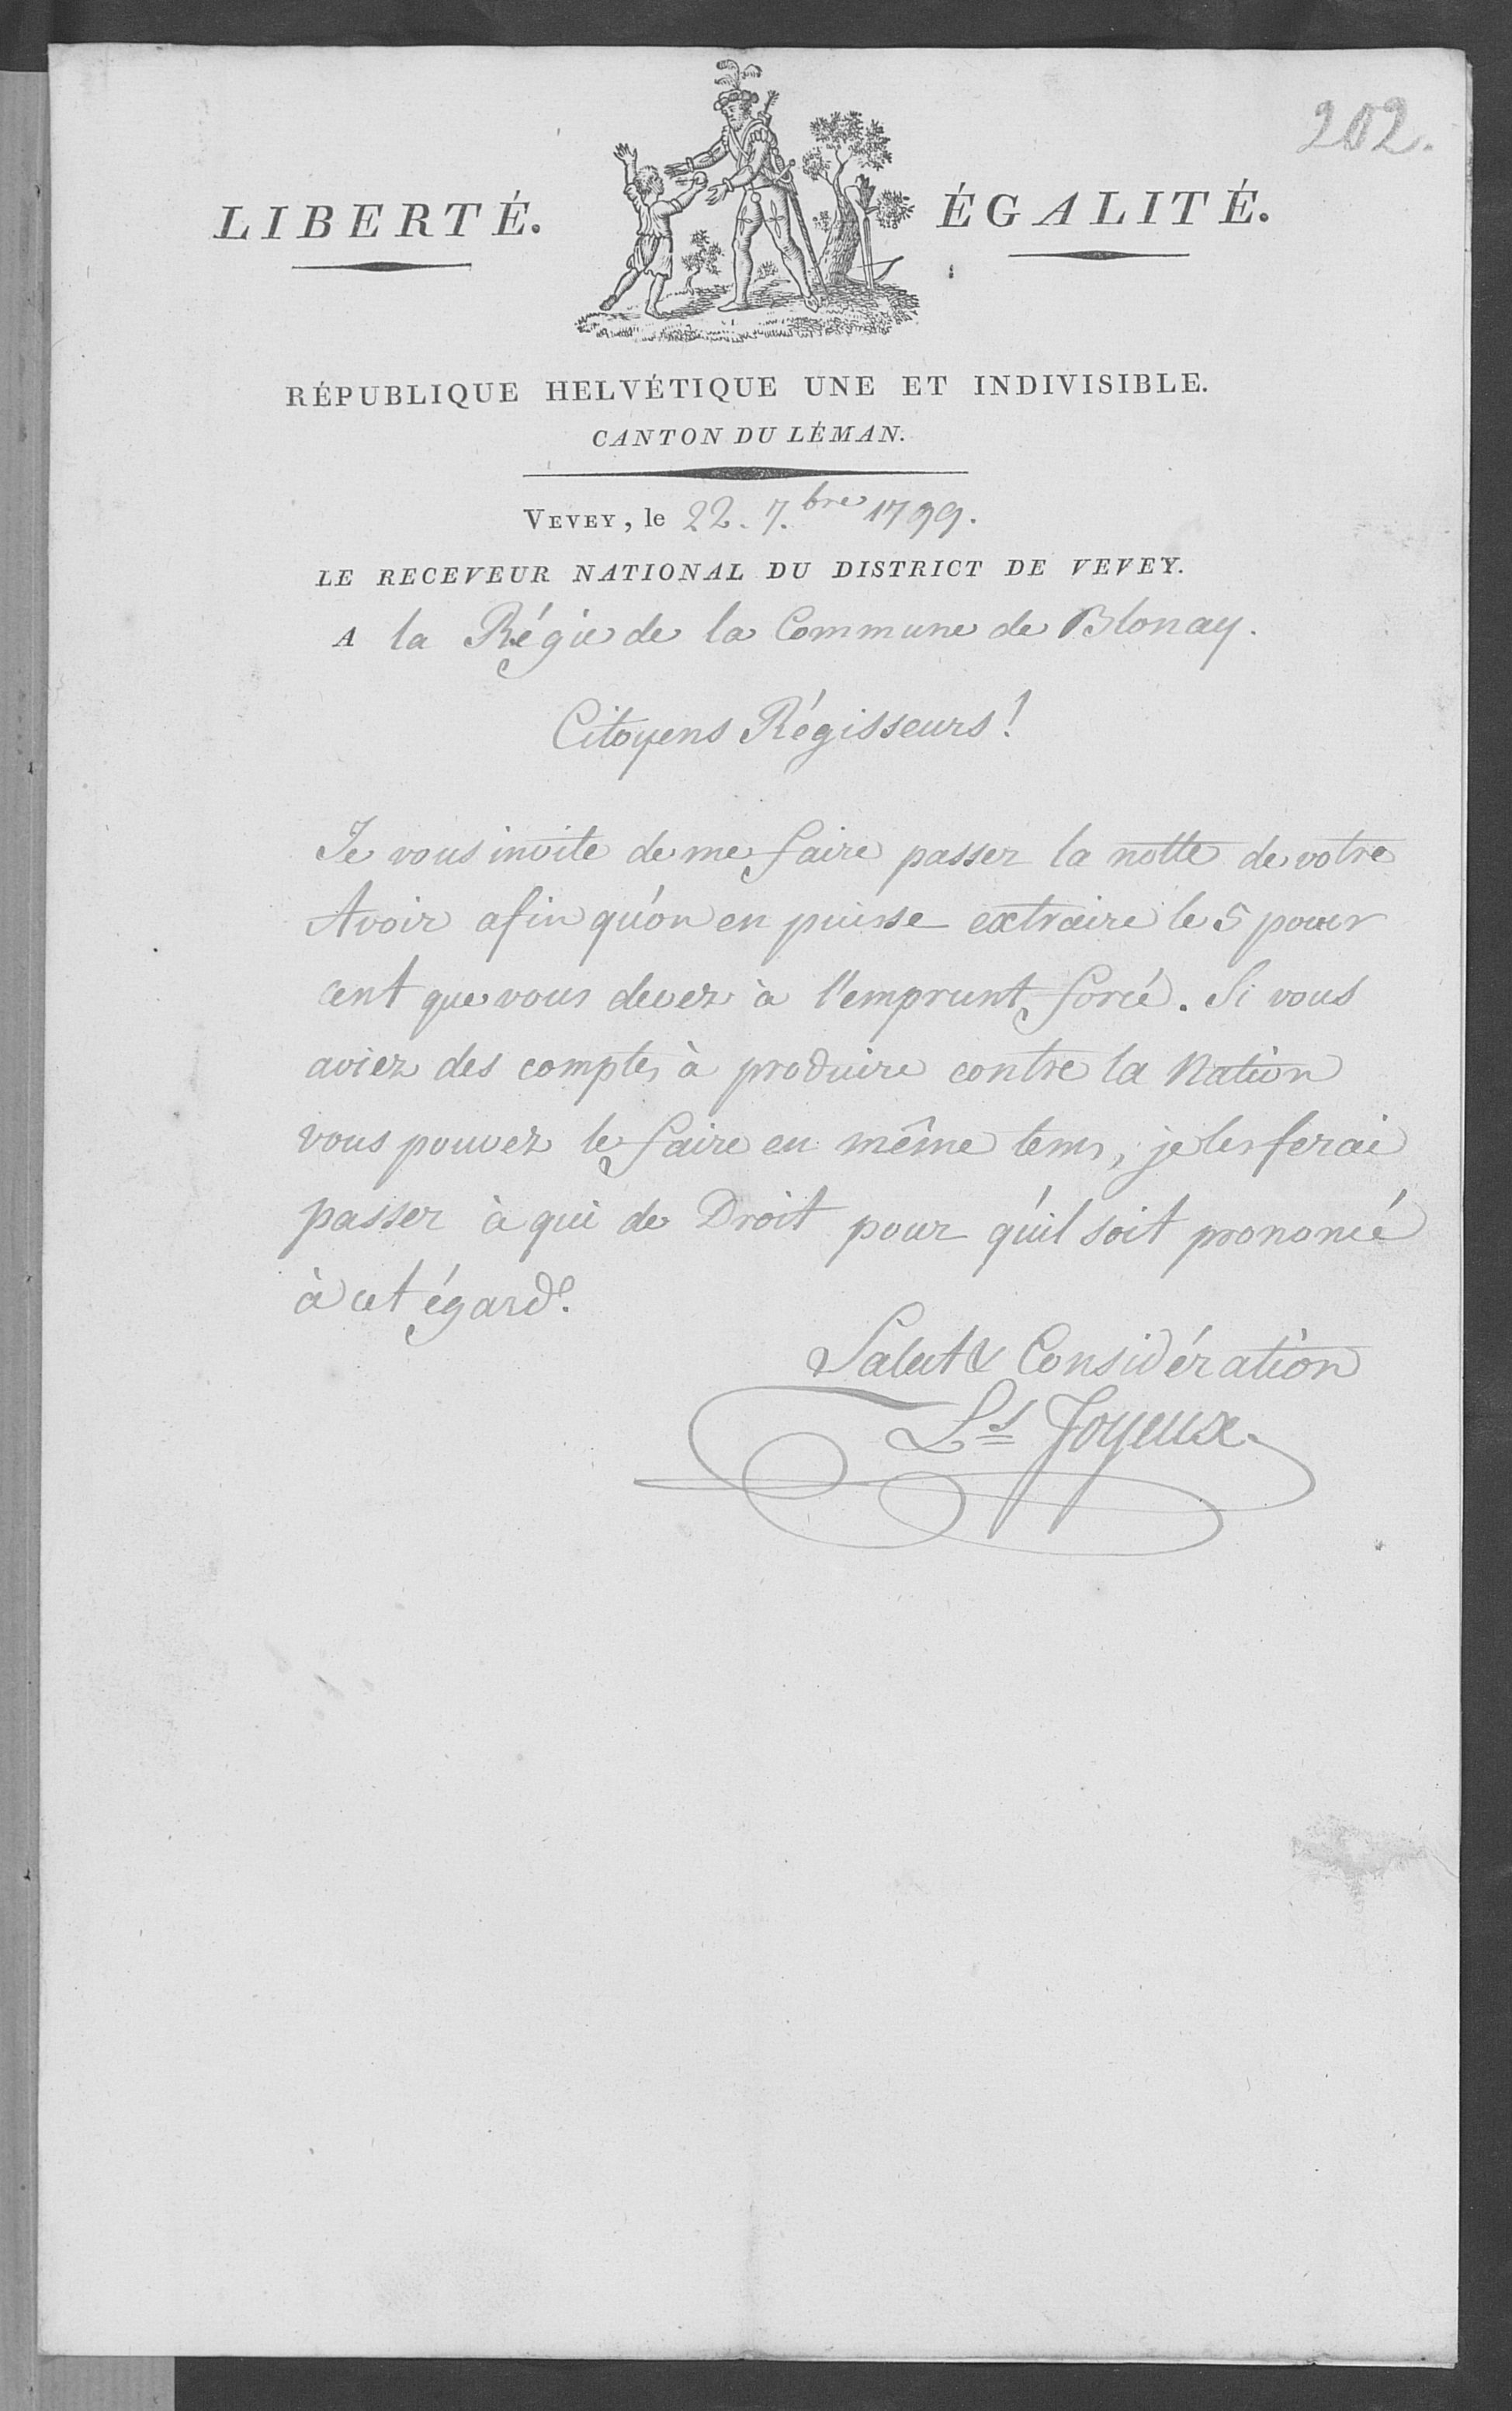 202.
LIBERTÉ. ÉGALITÉ.
RÉPUBLIQUE HELVÉTIQUE UNE ET INDIVISIBLE.
CANTON DU LÉMAN.
VEVEY, le 22. 7.bre 1799.
LE RECEVEUR NATIONAL DU DISTRICT DE VEVEY.
A la Régie de la Commune de Blonay.
Citoyens Régisseurs!
Je vous invite de me faire passer la notte de votre
Avoir afin qu'on en puisse extraire le 5 pour
cent que vous devez à l'emprunt forcé. Si vous
aviez des comptes à produire contre la Nation
vous pouvez le faire en même tems, je les ferai
passer à qui de Droit pour qu'il soit prononcé
à cet égard.
Salut & Considération
Ls Joyeux